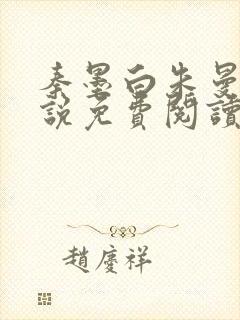 秦墨白朱曼
說免費閱讀
趙慶祥